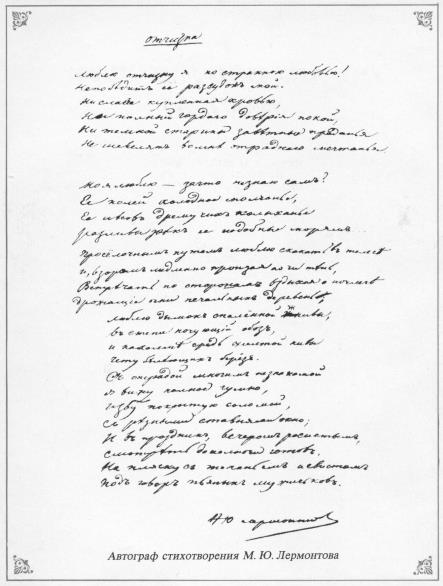 отчизна
Люблю отчизну я но странною любовью!
Непобѣдитъ ее разсудокъ мой.
Ни слава купленная кровью,
Ни полный гордаго довѣрія покой,
Ни темной старины завѣтныя преданья
Не шевелятъ во мнѣ отраднаго мечтанья
Но я люблю — за что незнаю самъ?
Ее полей холодное молчанье,
Ее лѣсовъ дремучихъ колыханье
разливы рѣкъ ее подобные морямъ...
Просёлочнымъ путемъ люблю скакать въ телегѣ
и, взоромъ медленно пронзая ночи тѣнь,
Встрѣчать по сторонамъ вздыхая о ночлегѣ
дрожащіе огни печальныхъ деревень,
люблю дымокъ спаленной жнивы,
въ степи ночующій обозъ,
и на холмѣ средь желтой нивы
чету белѣющихъ берёзъ.
Съ отрадой многимъ незнакомой
я вижу полное гумно,
избу покрытую соломой,
съ рѣзными ставнями окно;
И въ праздникъ, вечеромъ росистымъ,
смотрѣть до полночи готовъ
На пляску съ топаньемъ и свистомъ
подъ говоръ пьяныхъ мужичковъ.
М Ю Лермонтов
Автограф стихотворения М. Ю. Лермонтова